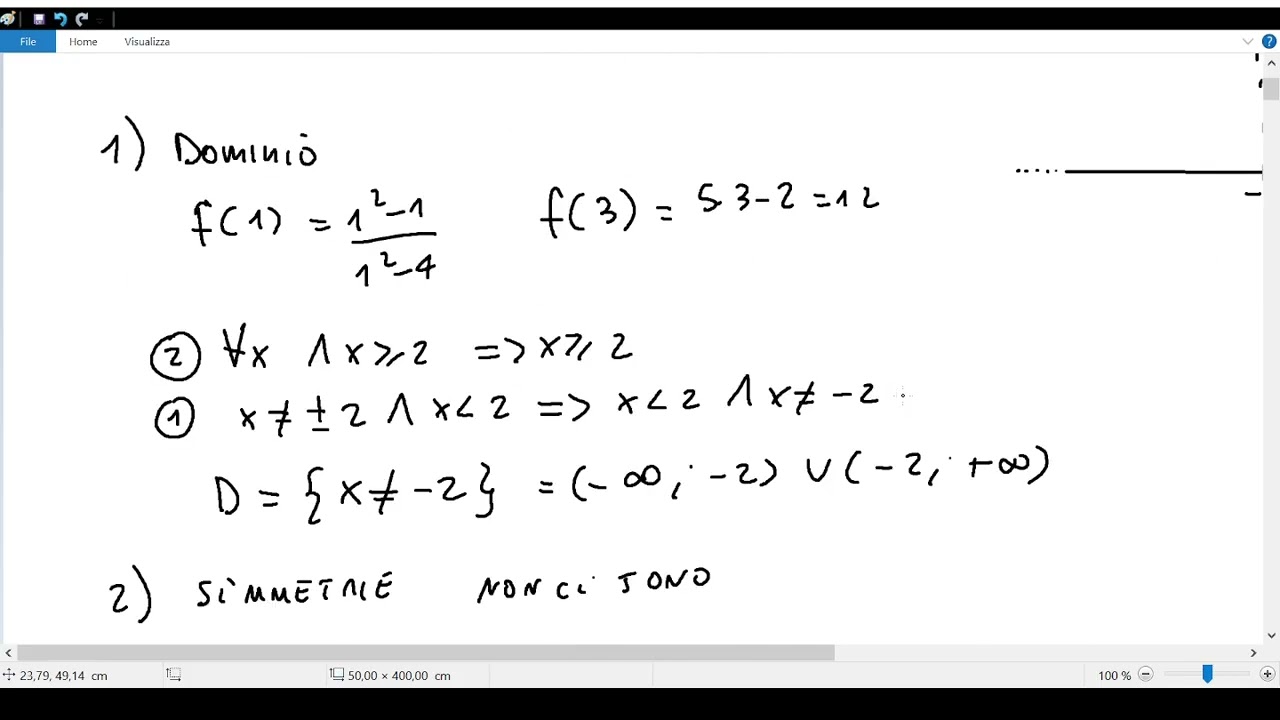 File Home Visualizza
1) Dominio
f(1) = 1²-1 / 1²-4 f(3) = 5·3-2 = 12
② ∀x ∧ x ⩾ 2 => x ⩾ 2
① x ≠ ± 2 ∧ x < 2 => x < 2 ∧ x ≠ -2
D = { x ≠ -2 } = (-∞; -2) ∪ (-2; +∞)
2) SIMMETRIE NON CI SONO
23,79, 49,14 cm 50,00 × 400,00 cm 100 %